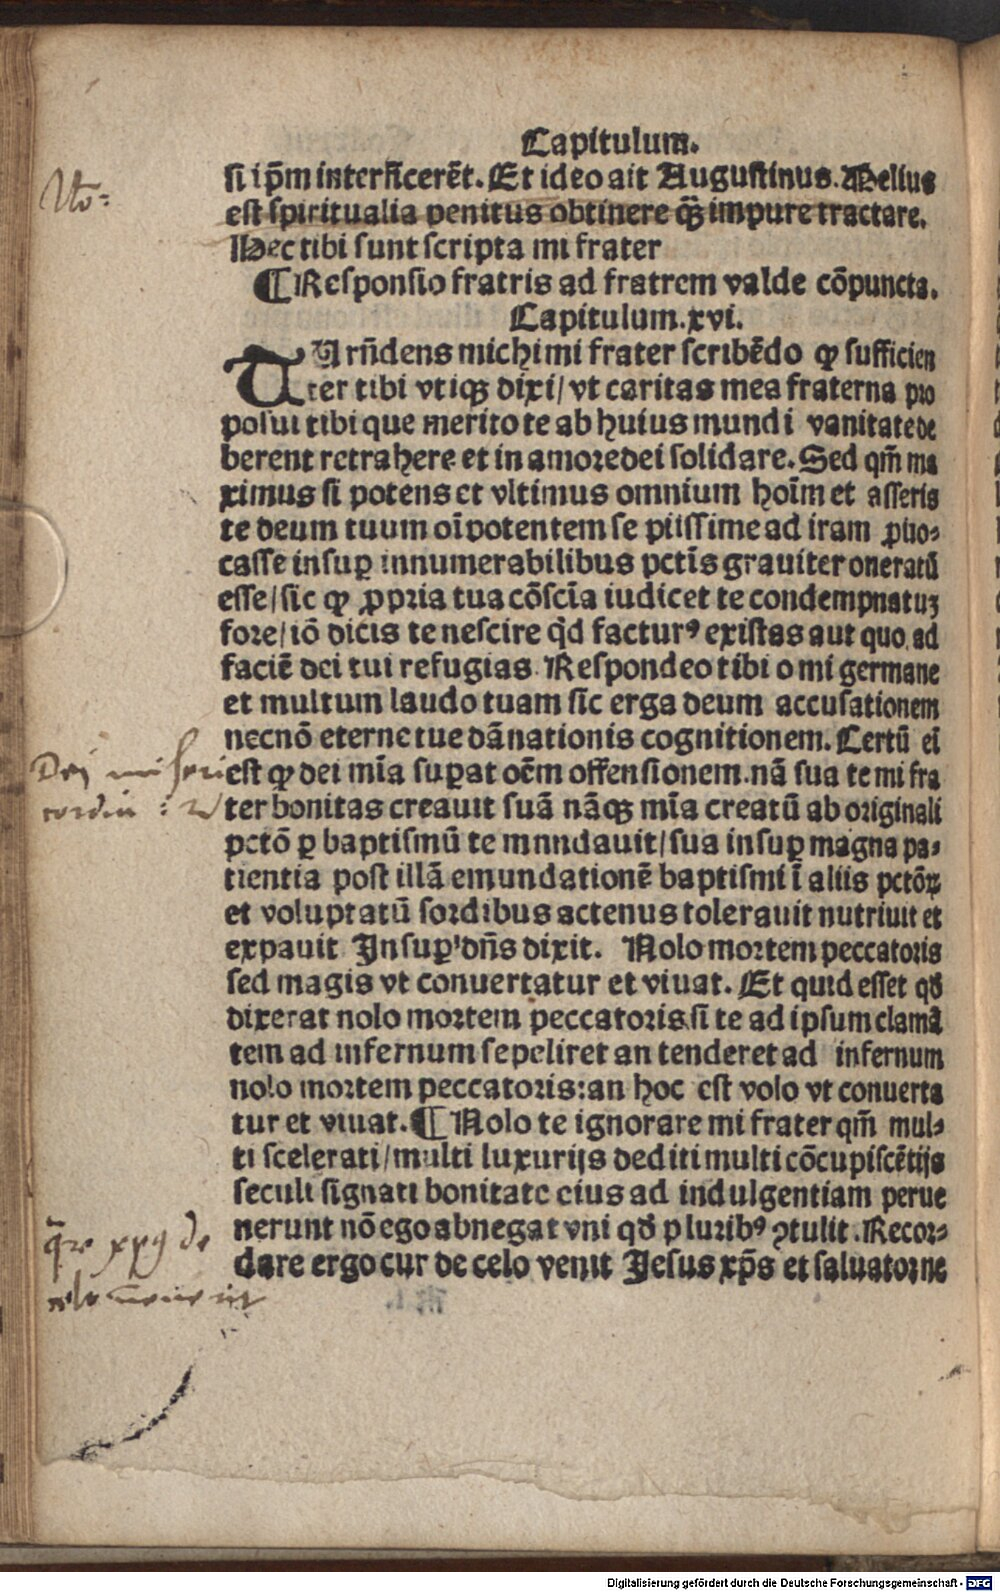 Capitulum.
si ip̄m interficerēt. Et ideo ait Augustinus. Melius
est spiritualia penitus obtinere qȝ̄ impure tractare.
Hec tibi sunt scripta mi frater
¶ Responsio fratris ad fratrem valde cōpuncta.
Capitulum.xvi.
VTrūdens michi mi frater scribēdo ꝙ sufficien
ter tibi vtiqꝫ dixi/ vt caritas mea fraterna pro
posui tibi que merito te ab huius mundi vanitate de
berent retrahere et in amore dei solidare. Sed qm̄ ma
ximus si potens et vltimus omnium hoīm et asseris
te deum tuum oīpotentem se piissime ad iram ꝓuo-
casse insuꝑ innumerabilibus pctīs grauiter oneratū
esse/ sic ꝙ ꝓpria tua cōscīa iudicet te condempnatuꝫ
fore/ iō dicis te nescire qͥd facturꝰ existas aut quo ad
faciē dei tui refugias. Respondeo tibi o mi germane
et multum laudo tuam sic erga deum accusationem
necnō eterne tue dānationis cognitionem. Certū eī
est ꝙ dei mīa suꝑat oēm offensionem. nā sua te mi fra
ter bonitas creauit suā nāqꝫ mīa creatū ab originali
pctō ꝑ baptismū te mnndauit/ sua insuꝑ magna pa-
tientia post illā emundationē baptismi ī aliis pctōꝝ
et voluptatū sordibus actenus tolerauit nutriuit et
expauit Insuꝑ dn̄s dixit. Nolo mortem peccatoris
sed magis vt conuertatur et viuat. Et quid esset qđ
dixerat nolo mortem peccatoris si te ad ipsum clamā
tem ad infernum sepeliret an tenderet ad infernum
nolo mortem peccatoris: an hoc est volo vt conuerta
tur et viuat. ¶ Nolo te ignorare mi frater qm̄ mul-
ti scelerati/ multi luxurijs dediti multi cōcupiscētijs
seculi signati bonitate eius ad indulgentiam perue
nerunt nō ego abnegat vni qđ pluribꝰ ꝯtulit. Recor-
dare ergo cur de celo venit Jesus xp̄s et saluator ne
Dei miseri
cordia :
q̄re xpꝰ de
celo venerit
Digitalisierung gefördert durch die Deutsche Forschungsgemeinschaft - DFG